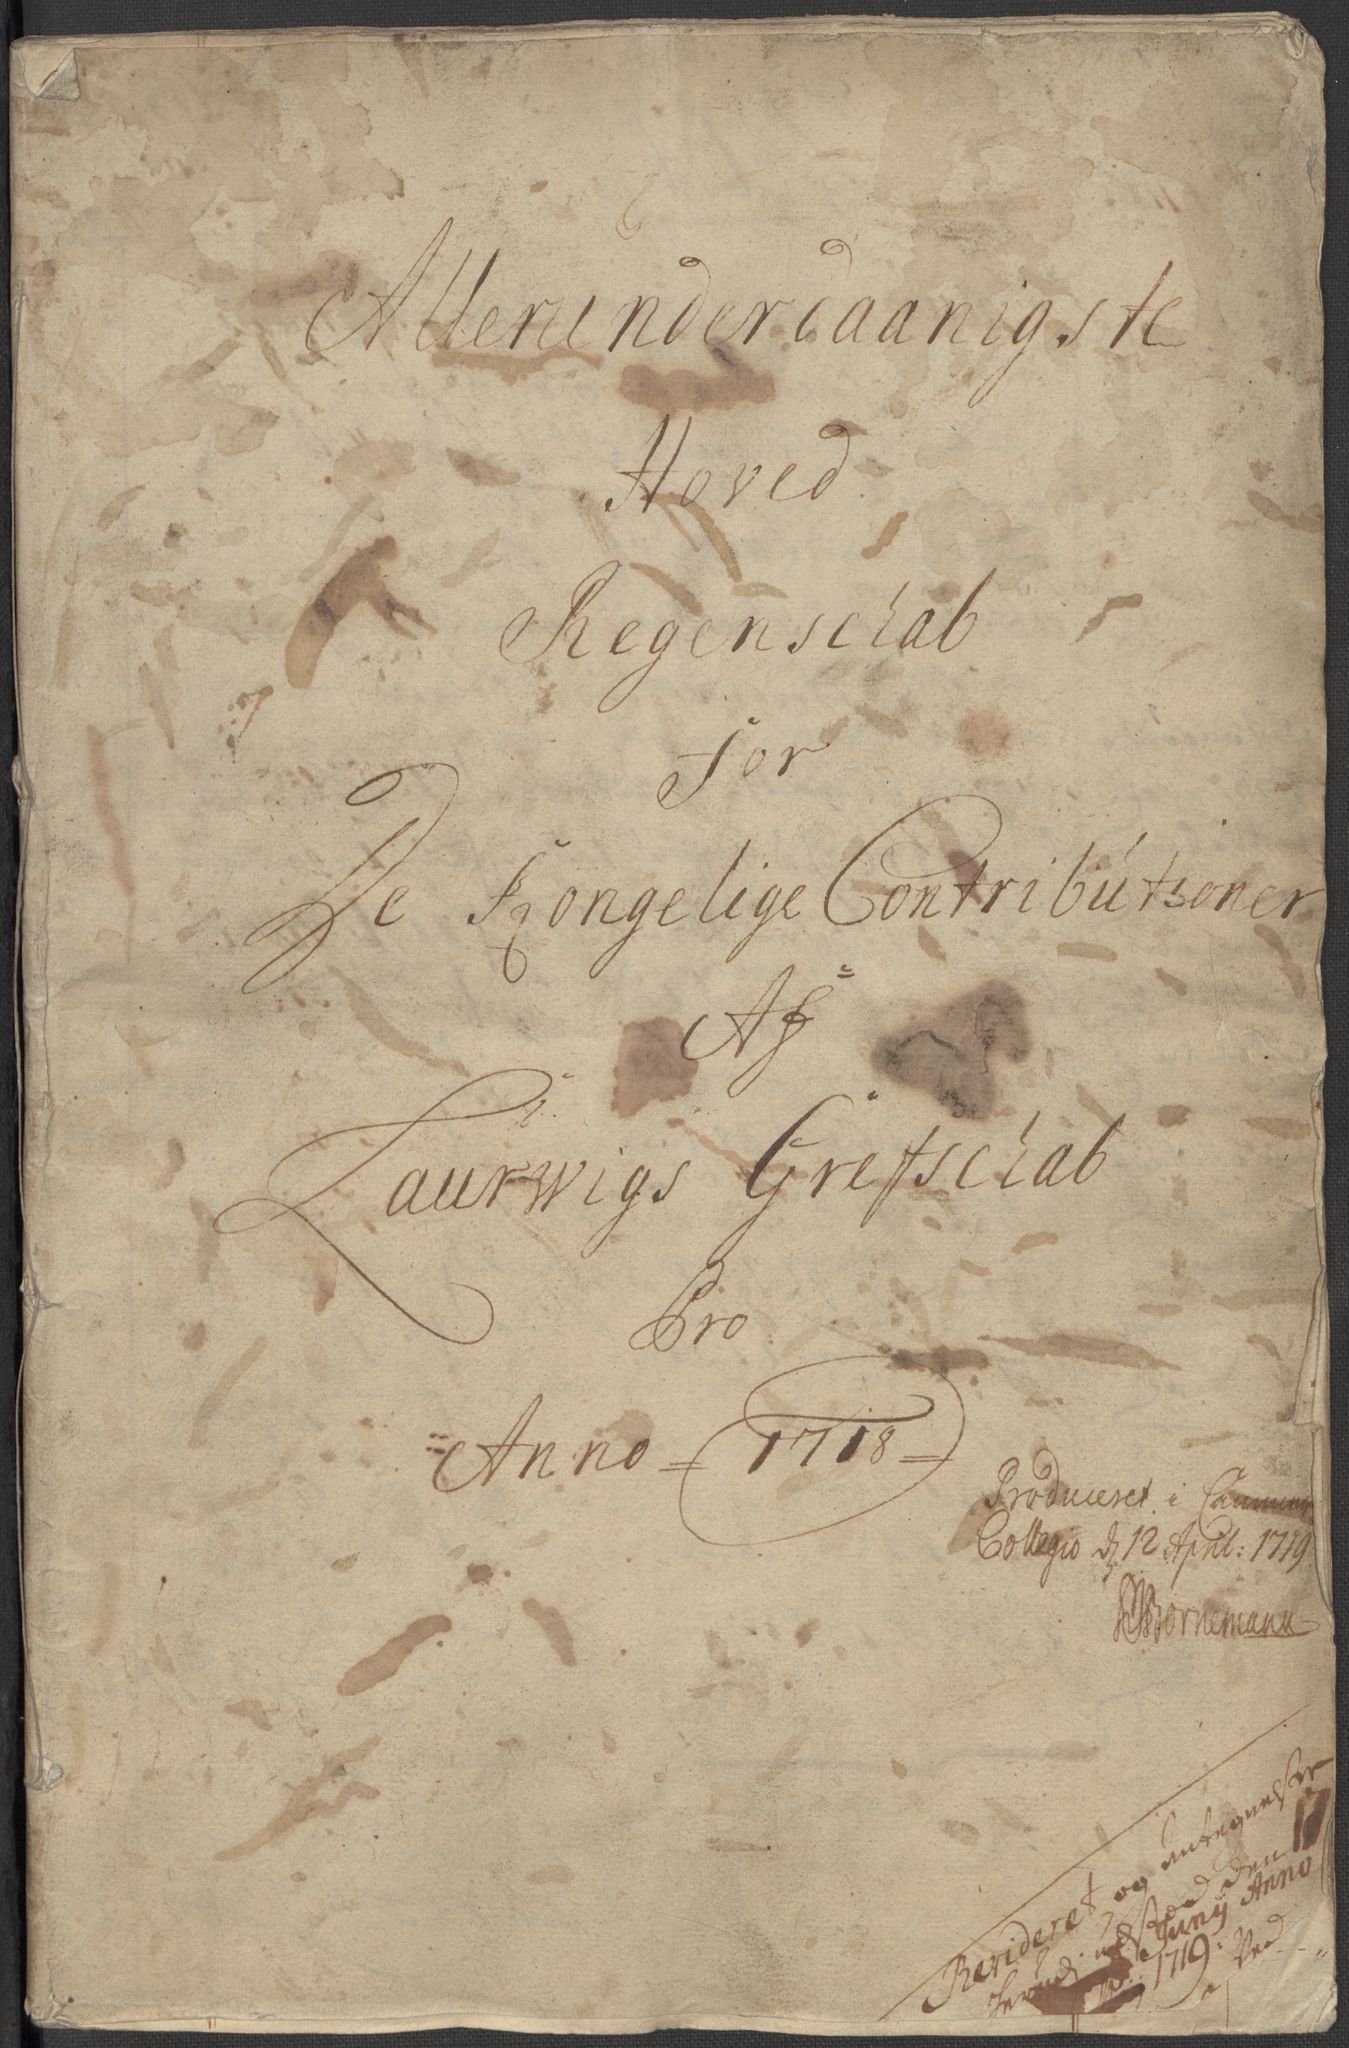 Allerunderdaanigste
Hoved
Regenschab
for
De Kongelige Contributioner
Af
Laurwigs Grefschab
Pro
Anno 1718
Produceret i Cammer
Collegio d 12 April: 1719
Bornemann
Revideret og Antegnelser
udsted den 17
Junij Anno
1719: Ved